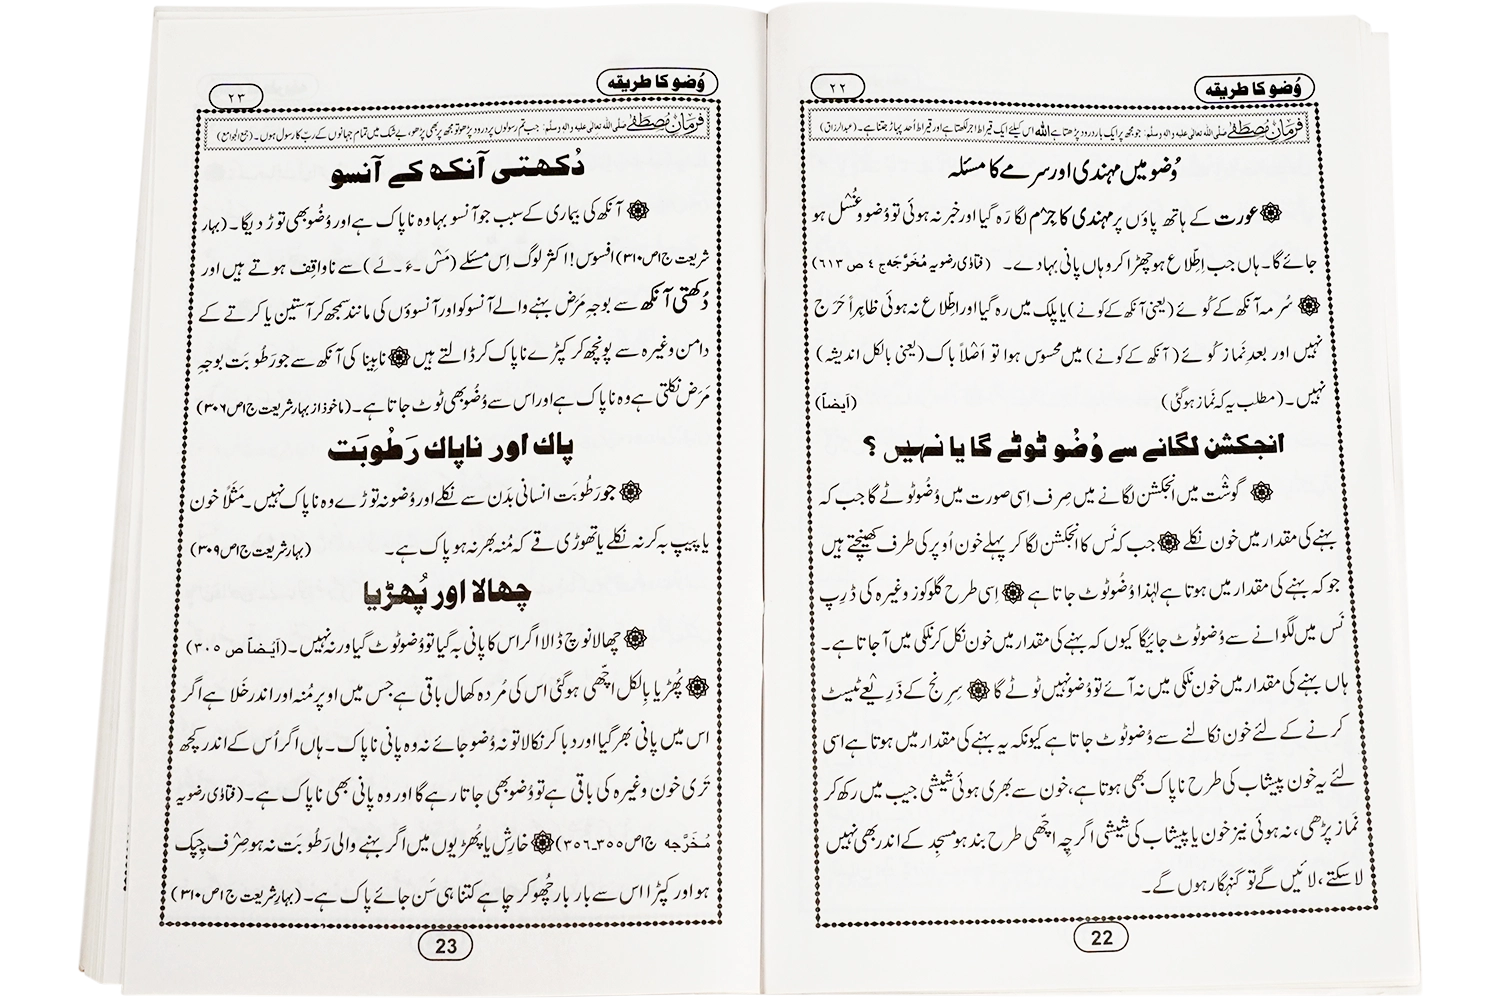 وُضو کا طریقہ
۲۲
فرمانِ مُصطَفٰے صلی اللہ تعالٰی علیہ والہ وسلم: جو مجھ پر ایک بار درود پڑھتا ہے اللہ اس کیلئے ایک قیراط اجر لکھتا ہے اور قیراط اُحد پہاڑ جتنا ہے۔ (عبدالرزاق)
وُضو میں مہندی اور سرمے کا مسئلہ
عورت کے ہاتھ پاؤں پر مہندی کا جِرْم لگا رَہ گیا اور خبر نہ ہوئی تو وُضو و غُسْل ہو
جائے گا۔ ہاں جب اِطِّلاع ہو چھڑا کر وہاں پانی بہا دے۔ (فتاوٰی رضویہ مُخَرَّجہ ج ٤ ص ٦١٣)
سُرمہ آنکھ کے کُوئے (یعنی آنکھ کے کونے) یا پلک میں رہ گیا اور اِطِّلاع نہ ہوئی ظاہراً حَرَج
نہیں اور بعدِ نَماز کُوئے (آنکھ کے کونے) میں محسوس ہوا تو اَصْلاً باک (یعنی بالکل اندیشہ)
نہیں۔ (مطلب یہ کہ نَماز ہوگئی) (اَیضاً)
انجکشن لگانے سے وُضُو ٹوٹے گا یا نہیں ؟
گوشْت میں انجکشن لگانے میں صِرف اِسی صورت میں وُضُو ٹوٹے گا جب کہ
بہنے کی مقدار میں خون نکلے جب کہ نَس کا انجکشن لگا کر پہلے خون اُوپر کی طرف کھینچتے ہیں
جو کہ بہنے کی مقدار میں ہوتا ہے لہٰذا وُضُو ٹوٹ جاتا ہے اِسی طرح گلوکوز وغیرہ کی ڈرِپ
نَس میں لگوانے سے وُضُو ٹوٹ جائیگا کیوں کہ بہنے کی مقدار میں خون نکل کر نلکی میں آجاتا ہے۔
ہاں بہنے کی مقدار میں خون نلکی میں نہ آئے تو وُضو نہیں ٹوٹے گا سِرِنج کے ذَرِیعے ٹیسٹ
کرنے کے لئے خون نکالنے سے وُضو ٹوٹ جاتا ہے کیونکہ یہ بہنے کی مقدار میں ہوتا ہے اسی
لئے یہ خون پیشاب کی طرح ناپاک بھی ہوتا ہے، خون سے بھری ہوئی شیشی جیب میں رکھ کر
نَماز پڑھی، نہ ہوئی نیز خون یا پیشاب کی شیشی اگرچِہ اچّھی طرح بند ہو مسجِد کے اندر بھی نہیں
لا سکتے، لائیں گے تو گنہگار ہوں گے۔
22
وُضو کا طریقہ
۲۳
فرمانِ مُصطَفٰے صلی اللہ تعالٰی علیہ والہ وسلم: جب تم رسولوں پر درود پڑھو تو مجھ پر بھی پڑھو، بے شک میں تمام جہانوں کے ربّ کا رسول ہوں۔ (جمع الجوامع)
دُکھتی آنکھ کے آنسو
آنکھ کی بیماری کے سبب جو آنسو بہا وہ ناپاک ہے اور وُضُو بھی توڑ دیگا۔ (بہار
شریعت ج۱ص۳۱۰) افسوس! اکثر لوگ اِس مسئلے (مَسْ ۔ءَ ۔لے) سے ناواقِف ہوتے ہیں اور
دُکھتی آنکھ سے بوجہِ مَرَض بہنے والے آنسو کو اور آنسوؤں کی مانند سمجھ کر آستین یا کرتے کے
دامن وغیرہ سے پونچھ کر کپڑے ناپاک کر ڈالتے ہیں نابینا کی آنکھ سے جو رَطُوبَت بوجہِ
مَرَض نکلتی ہے وہ ناپاک ہے اور اس سے وُضُو بھی ٹوٹ جاتا ہے۔ (ماخوذ از بہارِ شریعت ج۱ص۳۰۶)
پاک اور ناپاک رَطُوبَت
جو رَطُوبَت انسانی بدَن سے نکلے اور وُضو نہ توڑے وہ ناپاک نہیں۔ مَثَلاً خون
یا پیپ بہ کر نہ نکلے یا تھوڑی قے کہ مُنہ بھر نہ ہو پاک ہے۔ (بہارِ شریعت ج۱ص۳۰۹)
چھالا اور پُھڑیا
چھالا نوچ ڈالا اگر اس کا پانی بہ گیا تو وُضو ٹوٹ گیا ورنہ نہیں۔ (اَیْضاً ص ۳۰۵)
پُھڑیا بالکل اچّھی ہوگئی اس کی مُردہ کھال باقی ہے جس میں اوپر مُنہ اور اندر خَلا ہے اگر
اس میں پانی بھر گیا اور دبا کر نکالا تو نہ وُضو جائے نہ وہ پانی ناپاک۔ ہاں اگر اُس کے اندر کچھ
تَری خون وغیرہ کی باقی ہے تو وُضو بھی جاتا رہے گا اور وہ پانی بھی ناپاک ہے۔ (فتاوٰی رضویہ
مُخَرَّجہ ج۱ص۳۵۵-۳۵۶) خارِش یا پُھڑیوں میں اگر بہنے والی رَطُوبَت نہ ہو صِرْف چِپک
ہو اور کپڑا اس سے بار بار چُھو کر چاہے کتنا ہی سَن جائے پاک ہے۔ (بہارِ شریعت ج۱ص۳۱۰)
23